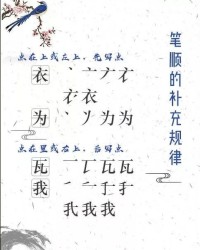 笔顺的补充规律
点在上或左上，先写点
衣 丶 亠 ナ 衣 衣
衣 衣
为 丶 丿 为 为
点在里或右上，后写点
瓦 一 丆 瓦 瓦
我 一 二 千 手
我 我 我